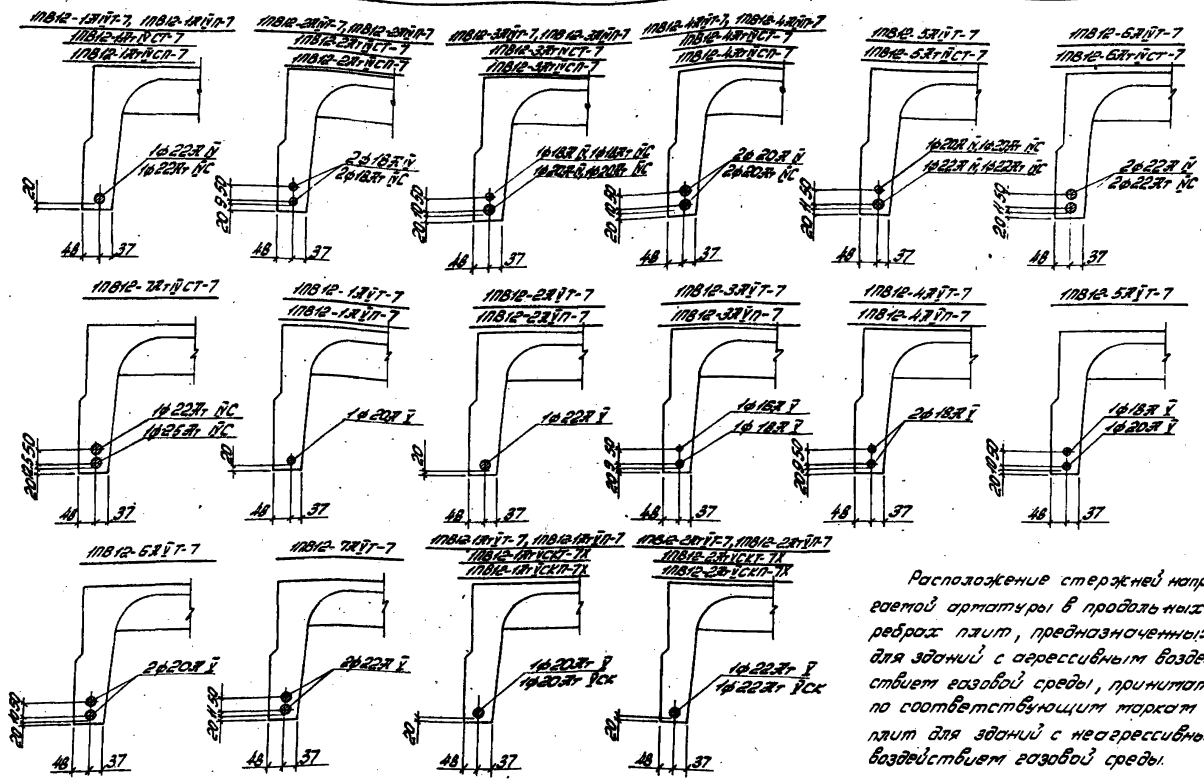 1ПВ12-1АIVТ-7, 1ПВ12-1АIVП-7
1ПВ12-1АтIVСТ-7
1ПВ12-1АтIVСП-7
1ф22АIV
1ф22АтIVС
20
48 37
1ПВ12-2АIVТ-7, 1ПВ12-2АIVП-7
1ПВ12-2АтIVСТ-7
1ПВ12-2АтIVСП-7
2ф18АIV
2ф18АтIVС
20 9 50
48 37
1ПВ12-3АIVТ-7, 1ПВ12-3АIVП-7
1ПВ12-3АтIVСТ-7
1ПВ12-3АтIVСП-7
1ф18АIV, 1ф18АтIVС
1ф20АIV, 1ф20АтIVС
20 10 50
48 37
1ПВ12-4АIVТ-7, 1ПВ12-4АIVП-7
1ПВ12-4АтIVСТ-7
1ПВ12-4АтIVСП-7
2ф20АIV
2ф20АтIVС
20 10 50
48 37
1ПВ12-5АIVТ-7
1ПВ12-5АтIVСТ-7
1ф20АIV, 1ф20АтIVС
1ф22АIV, 1ф22АтIVС
20 11 50
48 37
1ПВ12-6АIVТ-7
1ПВ12-6АтIVСТ-7
2ф22АIV
2ф22АтIVС
20 11 50
48 37
1ПВ12-7АтIVСТ-7
1ф22АтIVС
1ф25АтIVС
48 37
1ПВ12-1АVТ-7
1ПВ12-1АVП-7
1ф20АV
20
48 37
1ПВ12-2АVТ-7
1ПВ12-2АVП-7
1ф22АV
20
48 37
1ПВ12-3АVТ-7
1ПВ12-3АVП-7
1ф18АV
20 9 50
48 37
1ПВ12-4АVТ-7
1ПВ12-4АVП-7
2ф18АV
20 9 50
48 37
1ПВ12-5АVТ-7
1ф18АV
1ф20АV
20 10 50
48 37
1ПВ12-6АVТ-7
2ф20АV
20 10 50
48 37
1ПВ12-7АVТ-7
2ф22АV
20 11 50
48 37
1ПВ12-1АтVТ-7, 1ПВ12-1АтVП-7
1ПВ12-1АтVСКТ-7Х
1ПВ12-1АтVСКП-7Х
1ф20АтV
1ф20АтVСК
20
48 37
1ПВ12-2АтVТ-7, 1ПВ12-2АтVП-7
1ПВ12-2АтVСКТ-7Х
1ПВ12-2АтVСКП-7Х
1ф22АтV
1ф22АтVСК
20
48 37
Расположение стержней напр
гаемой арматуры в продольных
ребрах плит, предназначенны
для зданий с агрессивным возде
ствием газовой среды, принимат
по соответствующим маркам
плит для зданий с неагрессивн
воздействием газовой среды.